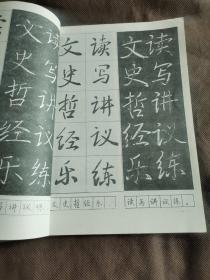 读写讲议练
文史哲经乐
读写讲议练
文史哲经乐
读写讲议练
文史哲经乐
讲议练文史哲经乐
读写讲议练。